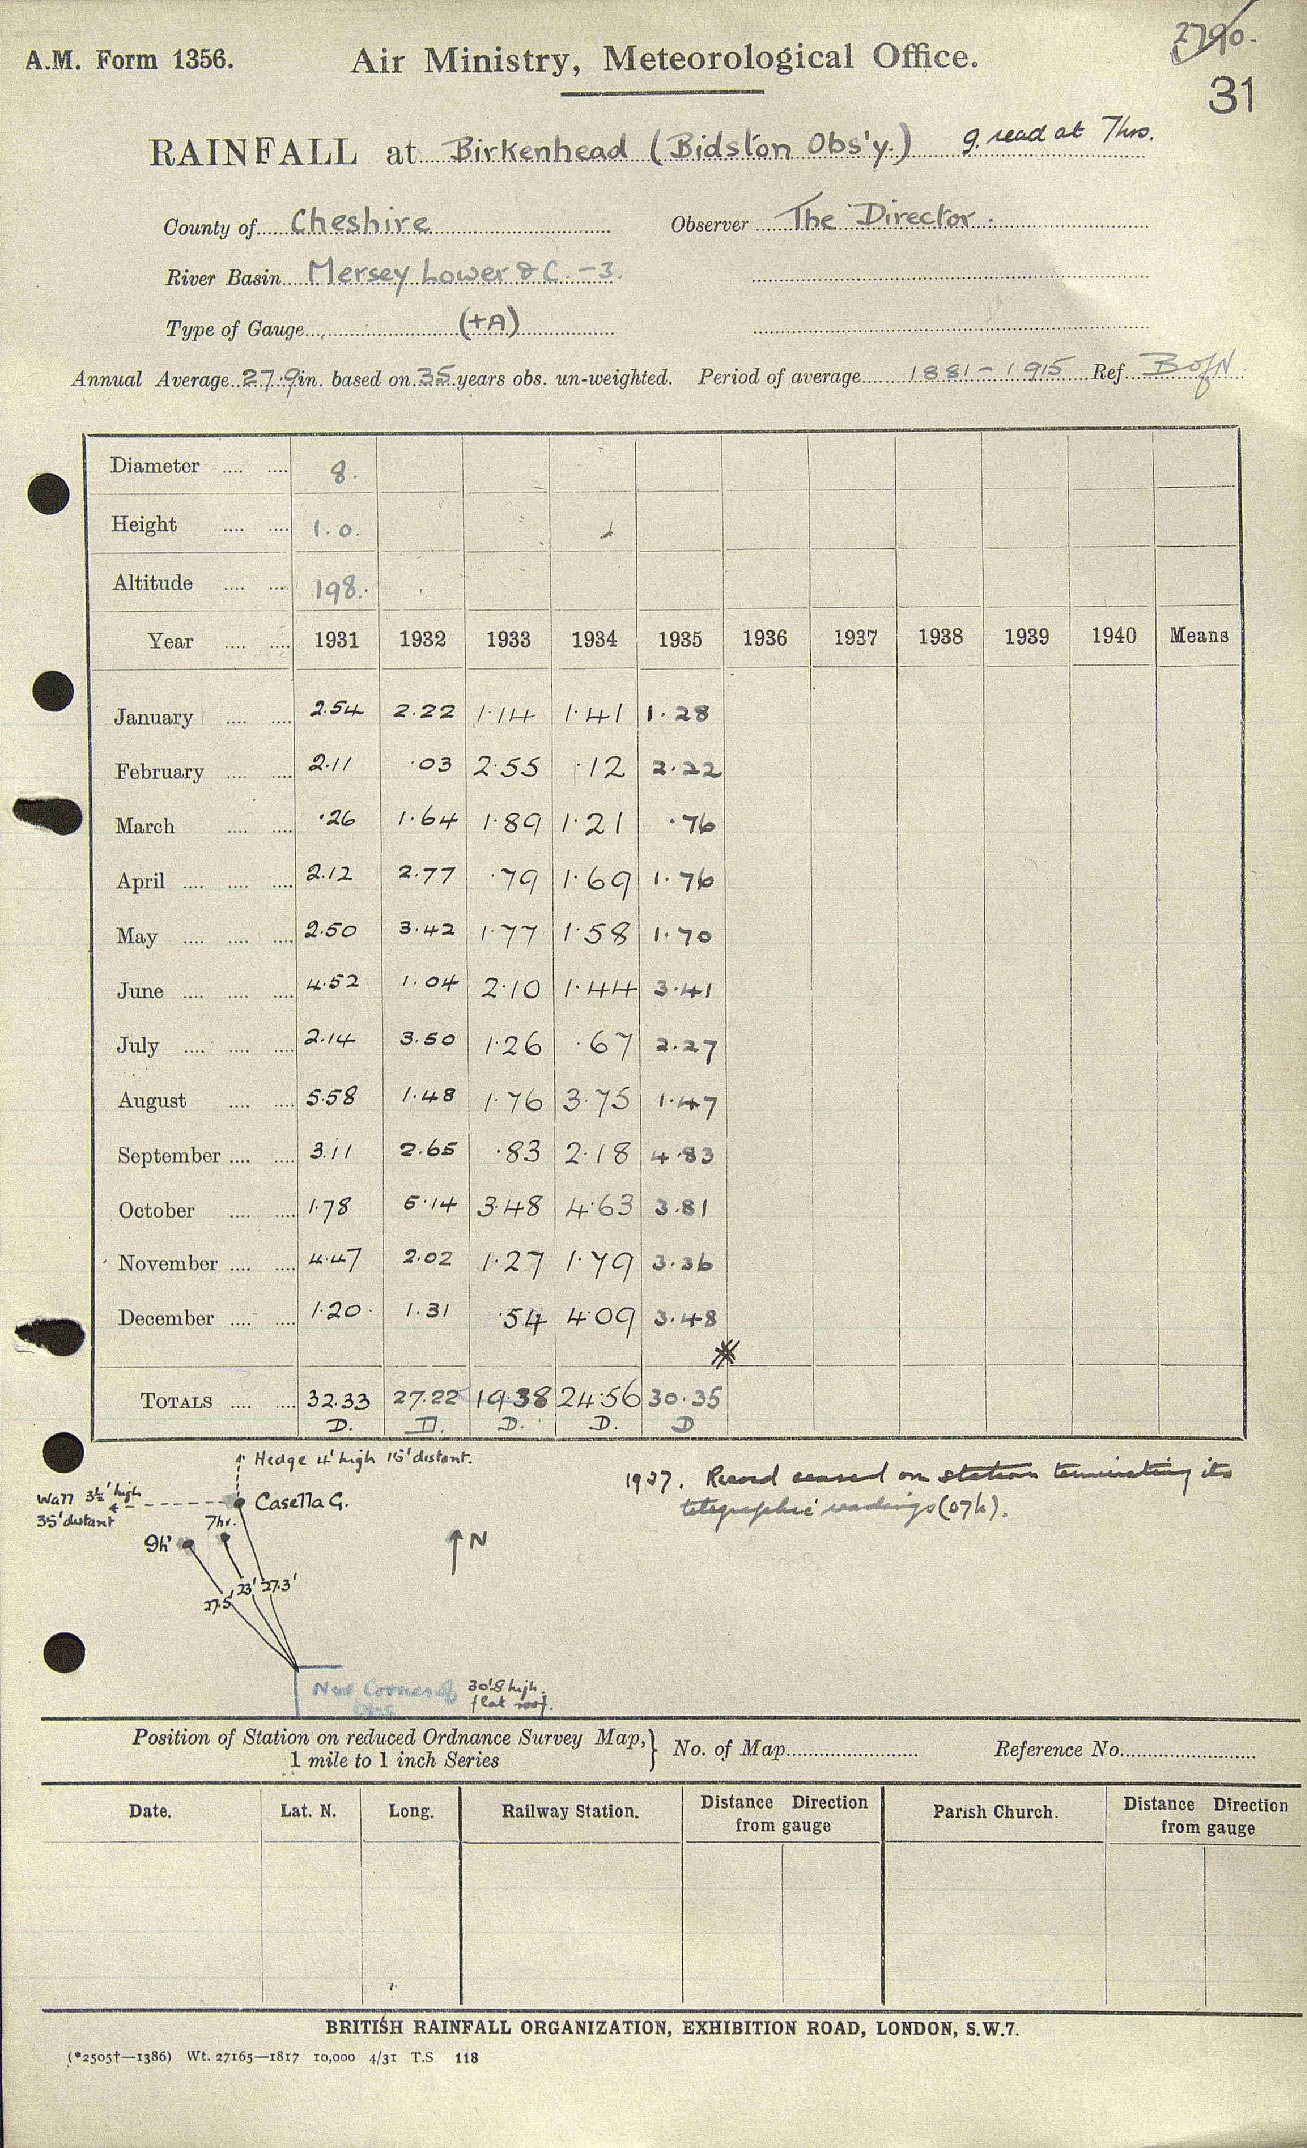 2790.
A.M. Form 1356. Air Ministry, Meteorological Office.
31
RAINFALL at Birkenhead (Bidston Obs'y.) g. read at 7hrs.
County of Cheshire Observer The Director.
River Basin Mersey Lower & C. - 3.
Type of Gauge (+A)
Annual Average 27.9 in. based on 35 years obs. un-weighted. Period of average 1881 - 1915 Ref B of N
Diameter .... .... 8.
Height .... .... 1.0.
Altitude .... .... 198.
Year .... .... 1931 1932 1933 1934 1935 1936 1937 1938 1939 1940 Means
January .... .... 2.54 2.22 1.14 1.41 1.28
February .... .... 2.11 .03 2.55 .12 2.22
March .... .... .26 1.64 1.89 1.21 .76
April .... .... .... 2.12 2.77 .79 1.69 1.76
May .... .... .... 2.50 3.42 1.77 1.58 1.70
June .... .... .... 4.52 1.04 2.10 1.44 3.41
July .... .... .... 2.14 3.50 1.26 .67 2.27
August .... .... 5.58 1.48 1.76 3.75 1.47
September .... .... 3.11 2.65 .83 2.18 4.83
October .... .... 1.78 5.14 3.48 4.63 3.81
November .... .... 4.47 2.02 1.27 1.79 3.36
December .... .... 1.20. 1.31 .54 4.09 3.48
TOTALS .... .... 32.33 27.22 19.38 24.56 30.35
D. D. D. D. D
Hedge 4' high 15' distant.
Wall 3½' high
35' distant
Casella G.
7hr.
9h
N
27.5' 23' 27.3'
NW Corner of
Obs
30'8 high
flat roof.
1937. Record ceased on station terminating its
telegraphic readings (07h).
Position of Station on reduced Ordnance Survey Map,
1 mile to 1 inch Series } No. of Map Reference No.
Date. Lat. N. Long. Railway Station. Distance from gauge Direction Parish Church. Distance from gauge Direction
BRITISH RAINFALL ORGANIZATION, EXHIBITION ROAD, LONDON, S.W.7.
(*2505†—1386) Wt. 27165—1817 10,000 4/31 T.S 118